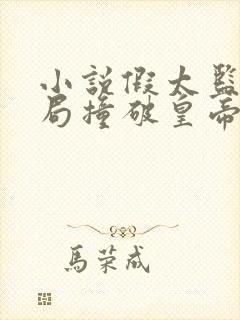 小説假太監
局撞破皇帝
馬荣成